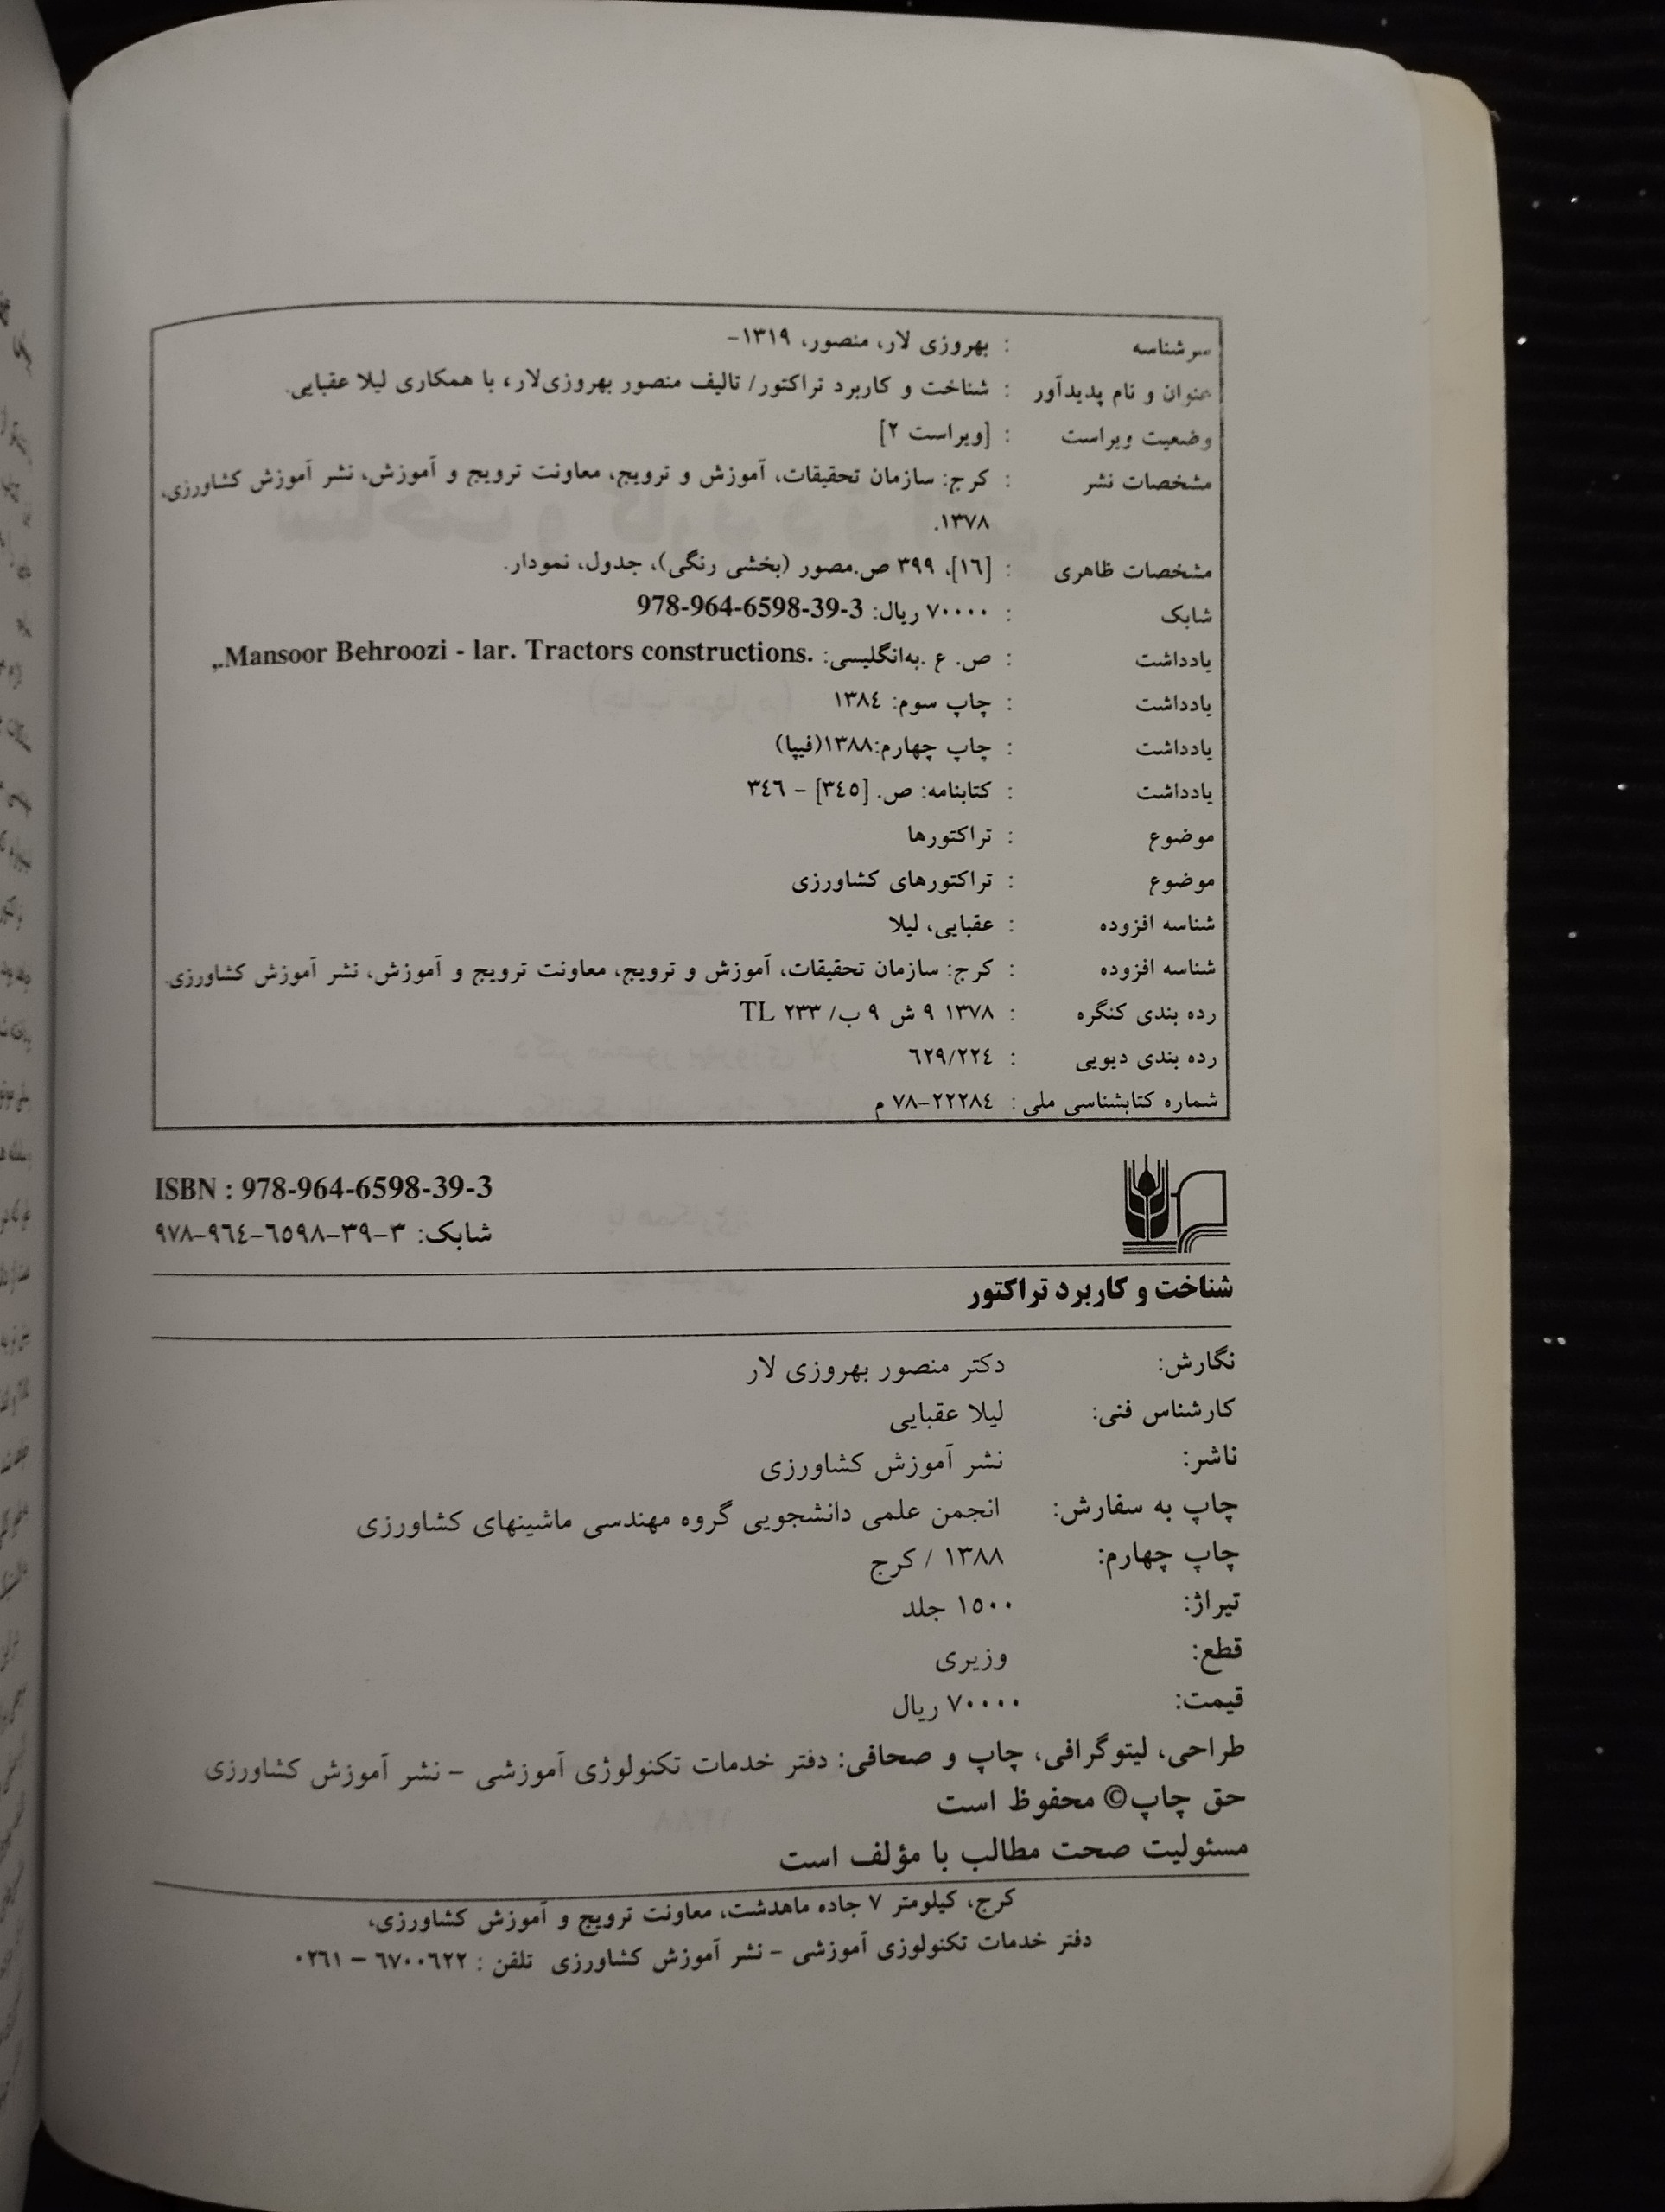 سرشناسه : بهروزی لار، منصور، ۱۳۱۹-
عنوان و نام پدیدآور : شناخت و کاربرد تراکتور/ تالیف منصور بهروزی‌لار، با همکاری لیلا عقبایی.
وضعیت ویراست : [ویراست ۲]
مشخصات نشر : کرج: سازمان تحقیقات، آموزش و ترویج، معاونت ترویج و آموزش، نشر آموزش کشاورزی،
۱۳۷۸.
مشخصات ظاهری : [۱۶]، ۳۹۹ ص.مصور (بخشی رنگی)، جدول، نمودار.
شابک : ۷۰۰۰۰ ریال: 978-964-6598-39-3
یادداشت : ص. ع .به‌انگلیسی: .Mansoor Behroozi - lar. Tractors constructions.,
یادداشت : چاپ سوم: ۱۳۸٤
یادداشت : چاپ چهارم:۱۳۸۸(فیپا)
یادداشت : کتابنامه: ص. [۳٤٥] - ۳٤٦
موضوع : تراکتورها
موضوع : تراکتورهای کشاورزی
شناسه افزوده : عقبایی، لیلا
شناسه افزوده : کرج: سازمان تحقیقات، آموزش و ترویج، معاونت ترویج و آموزش، نشر آموزش کشاورزی.
رده بندی کنگره : ۱۳۷۸ ۹ ش ۹ ب/ ۲۳۳ TL
رده بندی دیویی : ٦۲۹/۲۲٤
شماره کتابشناسی ملی : ۲۲۲۸٤-۷۸ م
ISBN : 978-964-6598-39-3
شابک: ۳-۳۹-٦٥۹۸-۹٦٤-۹۷۸
شناخت و کاربرد تراکتور
نگارش: دکتر منصور بهروزی لار
کارشناس فنی: لیلا عقبایی
ناشر: نشر آموزش کشاورزی
چاپ به سفارش: انجمن علمی دانشجویی گروه مهندسی ماشینهای کشاورزی
چاپ چهارم: ۱۳۸۸ / کرج
تیراژ: ۱٥۰۰ جلد
قطع: وزیری
قیمت: ۷۰۰۰۰ ریال
طراحی، لیتوگرافی، چاپ و صحافی: دفتر خدمات تکنولوژی آموزشی - نشر آموزش کشاورزی
حق چاپ© محفوظ است
مسئولیت صحت مطالب با مؤلف است
کرج، کیلومتر ۷ جاده ماهدشت، معاونت ترویج و آموزش کشاورزی،
دفتر خدمات تکنولوزی آموزشی - نشر آموزش کشاورزی تلفن : ٦۷۰۰٦۲۲ – ۰۲٦۱